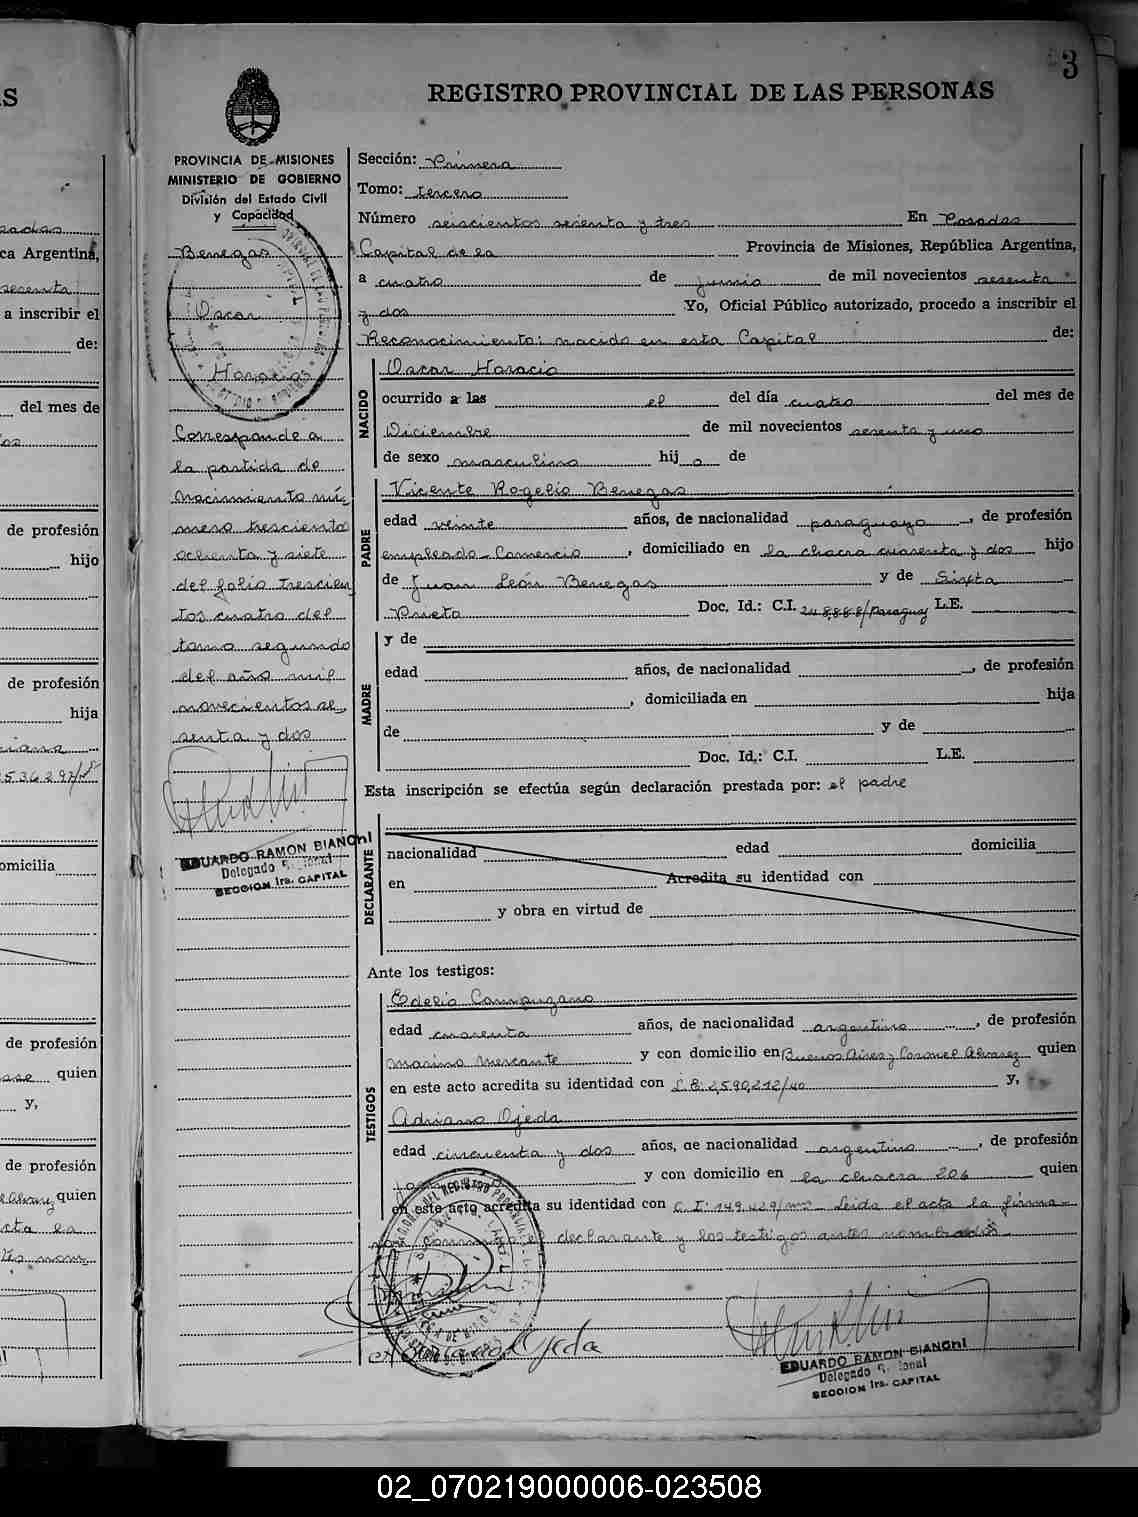 3
REGISTRO PROVINCIAL DE LAS PERSONAS
PROVINCIA DE MISIONES
MINISTERIO DE GOBIERNO
División del Estado Civil
y Capacidad
Benegas
Oscar
Horacio
Corresponde a
la partida de
nacimiento nú-
mero trescientos
ochenta y siete
del folio trescien
tos cuatro del
tomo segundo
del año mil
novecientos se-
senta y dos
EDUARDO RAMON BIANCHI
Delegado
SECCION 1ra. CAPITAL
Sección: Primera
Tomo: tercero
Número seiscientos sesenta y tres En Posadas
Capital de la Provincia de Misiones, República Argentina,
a cuatro de junio de mil novecientos sesenta
y dos Yo, Oficial Público autorizado, procedo a inscribir el
Reconocimiento: nacido en esta Capital de:
NACIDO
Oscar Horacio
ocurrido a las el del día cuatro del mes de
Diciembre de mil novecientos sesenta y uno
de sexo masculino hij o de
PADRE
Vicente Rogelio Benegas
edad veinte años, de nacionalidad paraguayo, de profesión
empleado - Comercio, domiciliado en la chacra cuarenta y dos hijo
de Juan León Benegas y de Sixta
Prieto Doc. Id.: C.I. 248.888/Paraguay L.E.
MADRE
y de
edad años, de nacionalidad , de profesión
, domiciliada en hija
de y de
Doc. Id.: C.I. L.E.
Esta inscripción se efectúa según declaración prestada por: el padre
DECLARANTE
nacionalidad edad domicilia
en Acredita su identidad con
y obra en virtud de
Ante los testigos:
TESTIGOS
Edelio
edad cuarenta años, de nacionalidad argentino, de profesión
marino mercante y con domicilio en Buenos Aires y Coronel Alvarez quien
en este acto acredita su identidad con L.E. 2,590,212/40 y,
Adriano Ojeda
edad cincuenta y dos años, de nacionalidad argentino, de profesión
y con domicilio en la chacra 206 quien
en este acto acredita su identidad con C.I. 149.429/ Leída el acta la firma
declarante y los testigos antes nombrados.
Ojeda
EDUARDO RAMON BIANCHI
Delegado
SECCION 1ra. CAPITAL
02_070219000006-023508